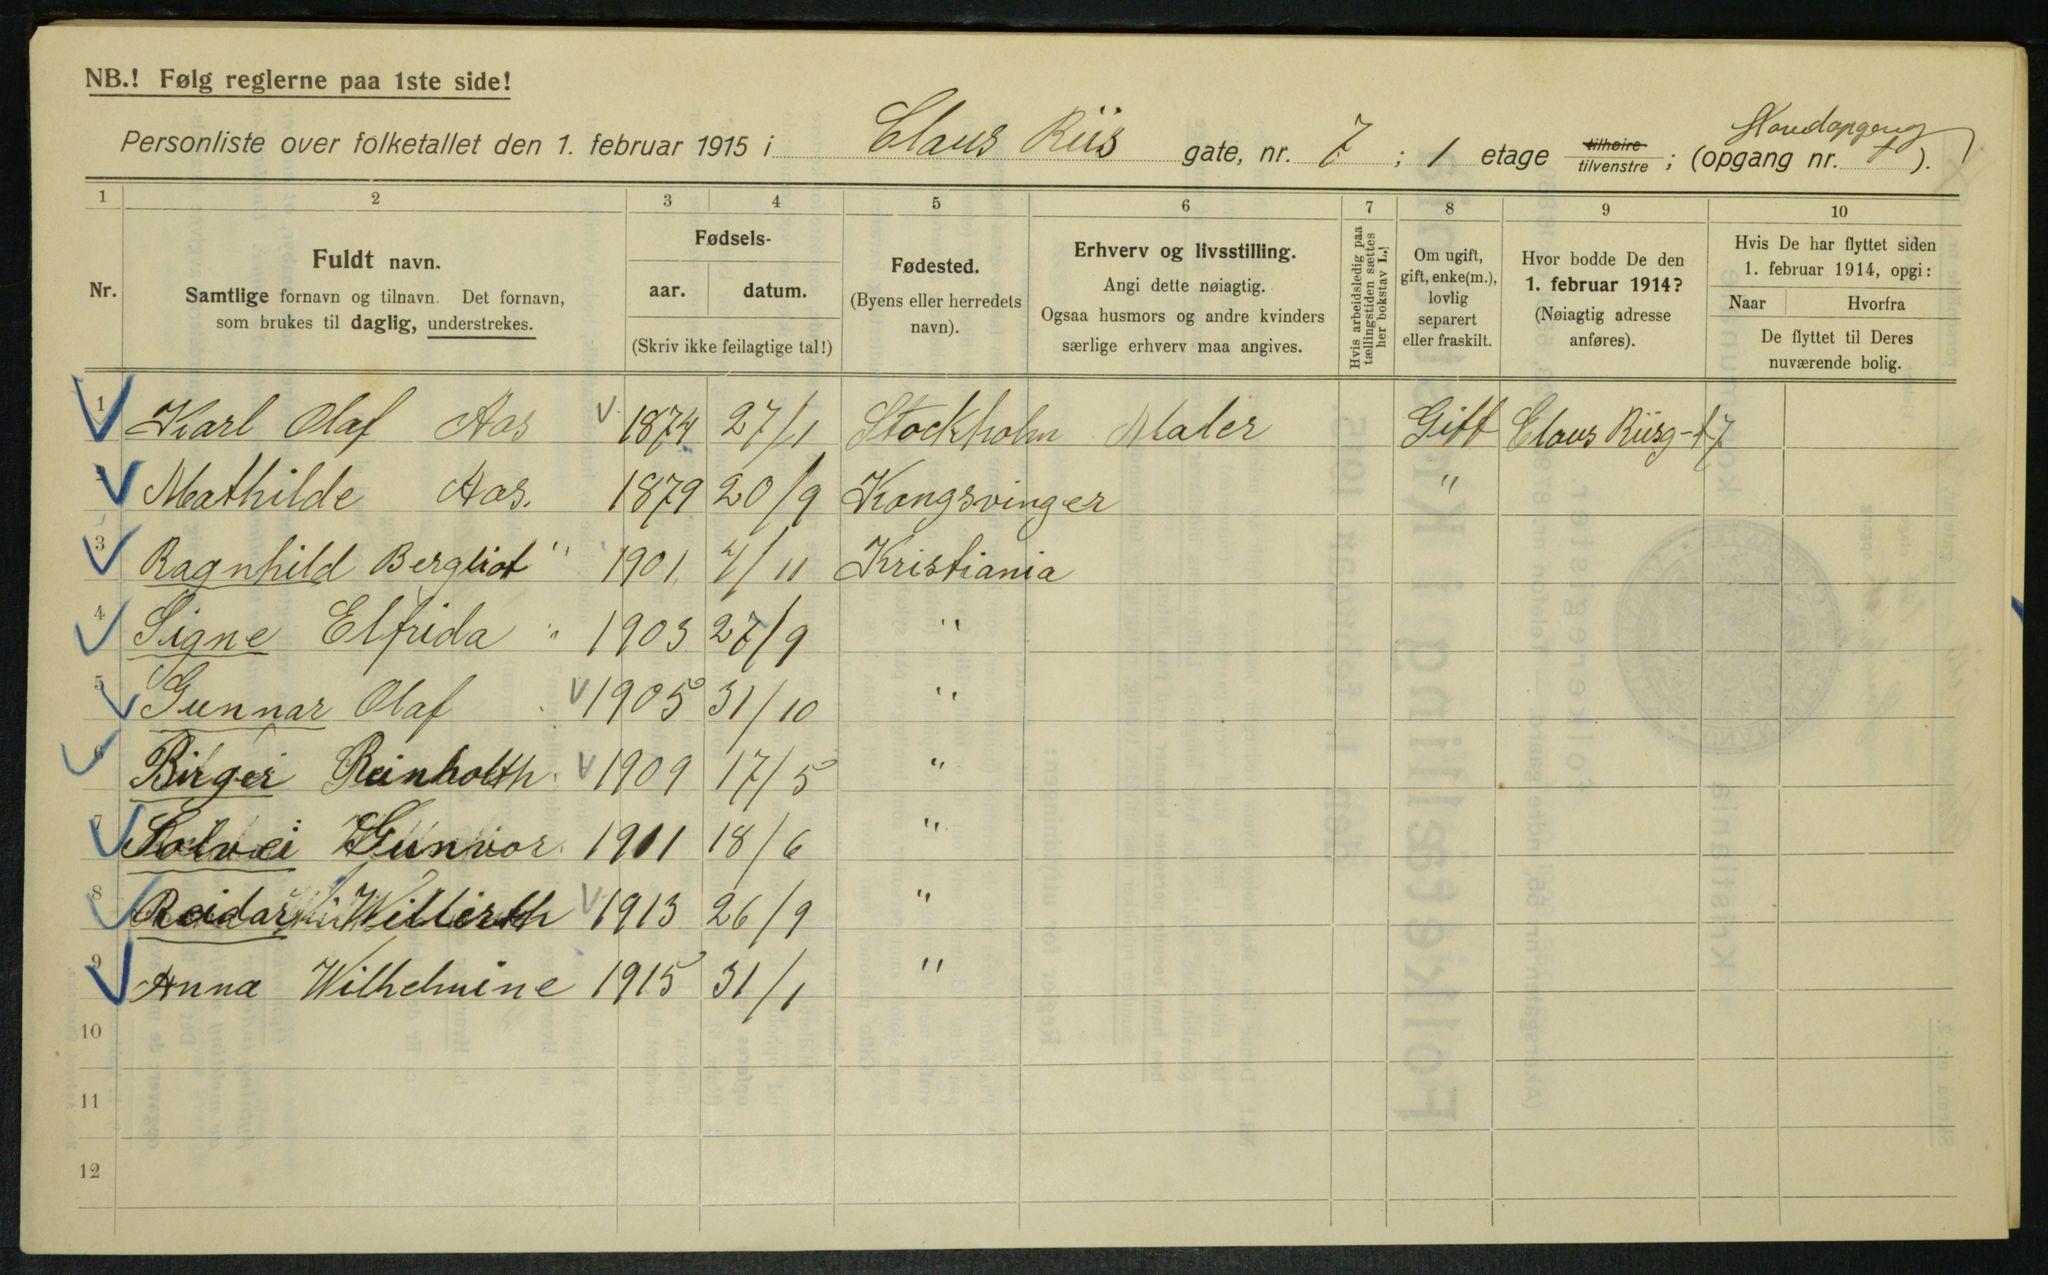 NB.! Følg reglerne paa 1ste side!
Personliste over folketallet den 1. februar 1915 i Claus Riis gate, nr. 7 ; 1 etage tilhøire tilvenstre ; (opgang nr. ).
1 2 3 4 5 6 7 8 9 10
Nr.
Fuldt navn.
Samtlige fornavn og tilnavn. Det fornavn,
som brukes til daglig, understrekes.
Fødsels-
aar. datum.
(Skriv ikke feilagtige tal!)
Fødested.
(Byens eller herredets
navn).
Erhverv og livsstilling.
Angi dette nøiagtig.
Ogsaa husmors og andre kvinders
særlige erhverv maa angives.
Hvis arbeidsledig paa
tællingstiden sættes
her bokstav L.
Om ugift,
gift, enke(m.),
lovlig
separert
eller fraskilt.
Hvor bodde De den
1. februar 1914?
(Nøiagtig adresse
anføres).
Hvis De har flyttet siden
1. februar 1914, opgi:
Naar Hvorfra
De flyttet til Deres
nuværende bolig.
1 Karl Olaf Aas 1874 27/1 Stockholm Maler Gift Claus Riisg-t 7
2 Mathilde Aas. 1879 20/9 Kongsvinger "
3 Ragnhild Bergliot " 1901 4/11 Kristiania
4 Signe Elfrida " 1903 27/9 "
5 Gunnar Olaf 1905 31/10 "
6 Birger Reinholth 1909 17/5 "
7 Solvei Gunvor 1911 18/6 "
8 Reidar 1913 26/9 "
9 Anna Wilhelmine 1915 31/1 "
10
11
12